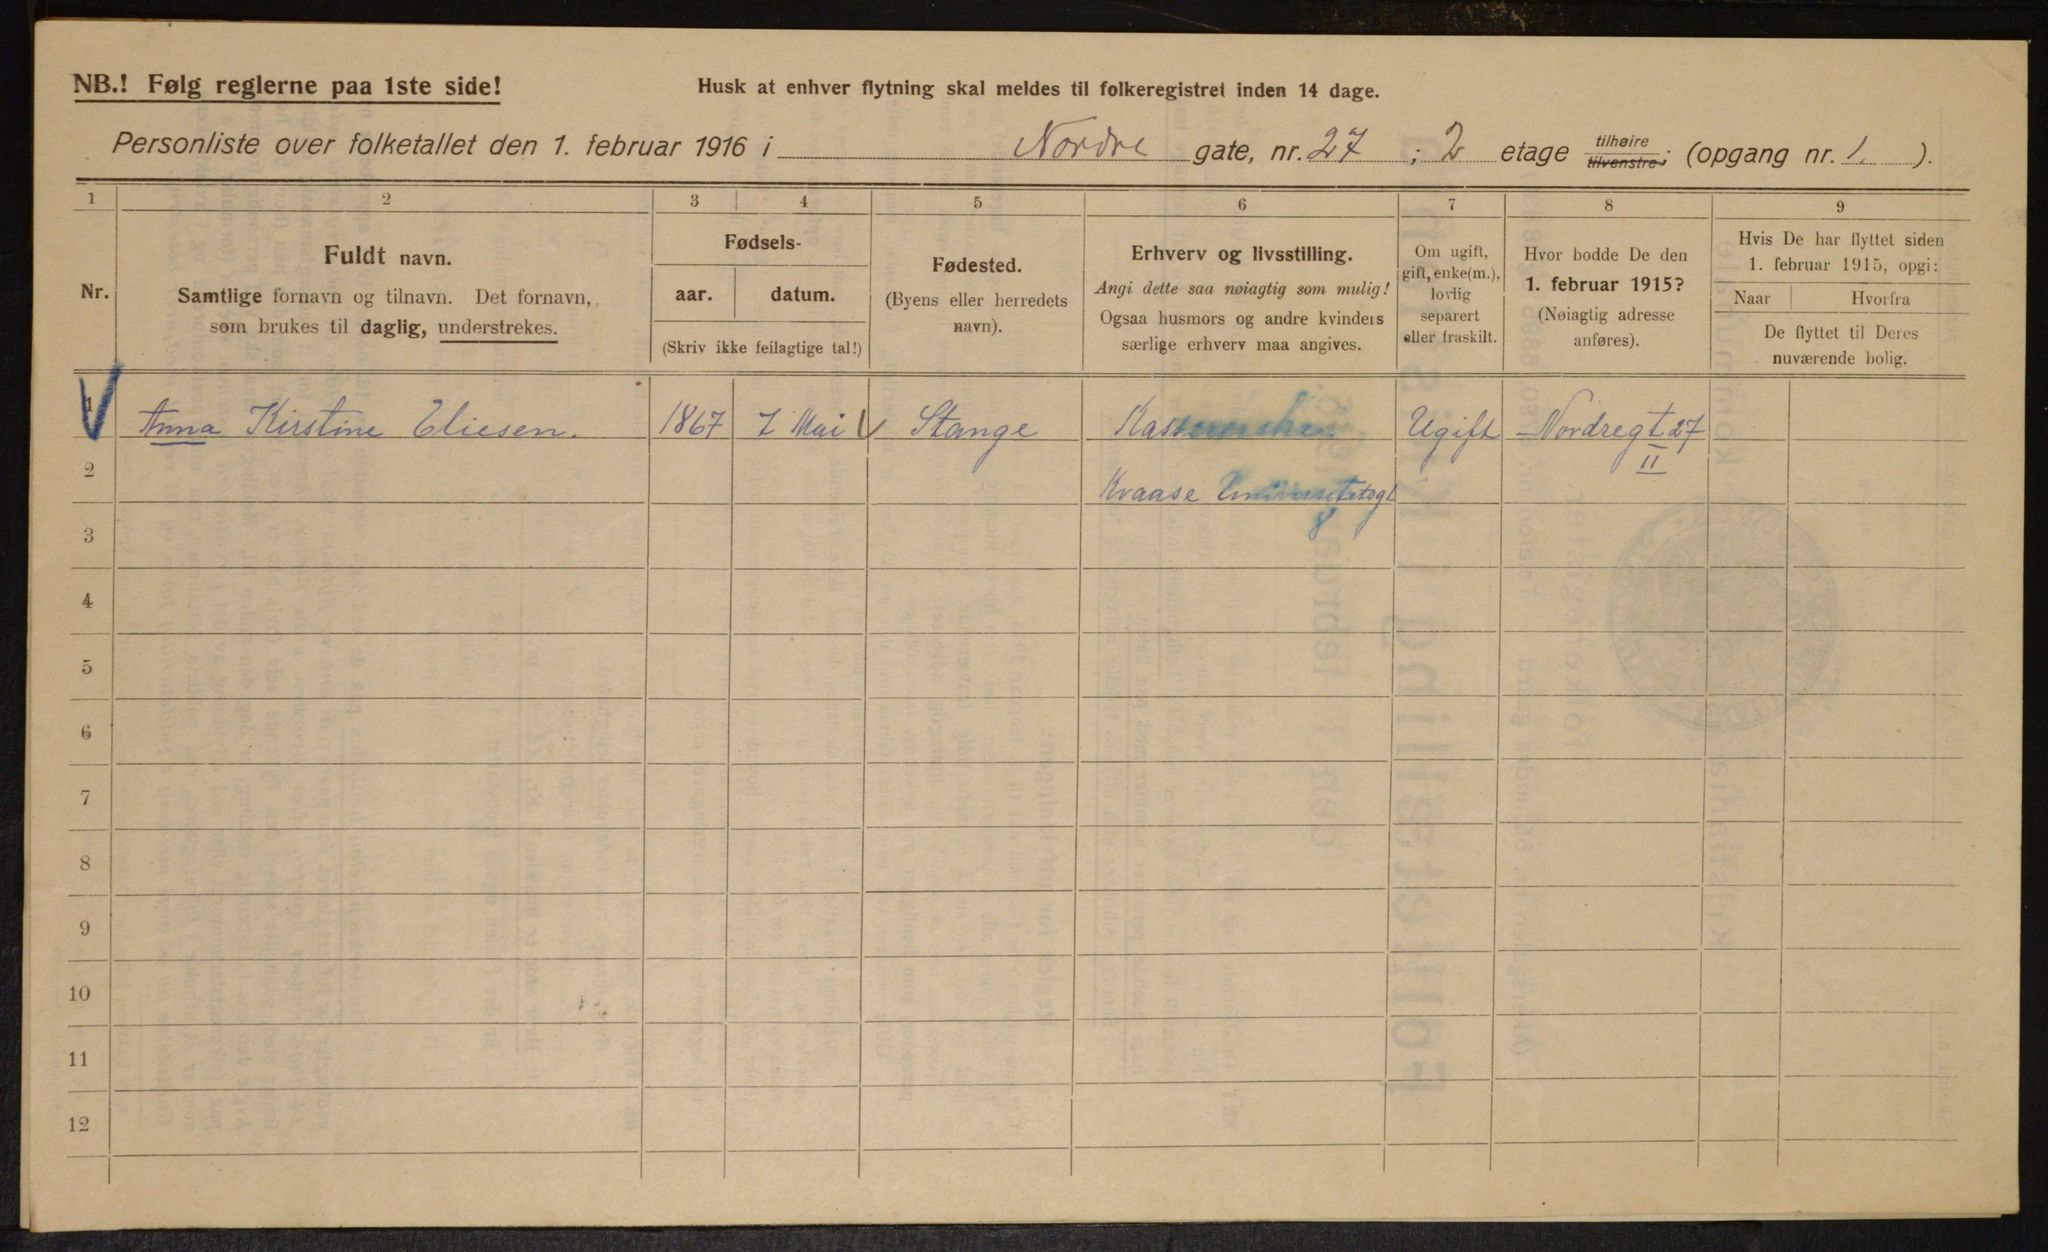 NB.! Følg reglerne paa 1ste side!
Husk at enhver flytning skal meldes til folkeregistret inden 14 dage.
Personliste over folketallet den 1. februar 1916 i Nordre gate, nr. 27 ; 2 etage tilhøire tilvenstre; (opgang nr. 1. ).
1 2 3 4 5 6 7 8 9
Nr.
Fuldt navn.
Samtlige fornavn og tilnavn. Det fornavn,
som brukes til daglig, understrekes.
Fødsels-
aar. datum.
(Skriv ikke feilagtige tal!)
Fødested.
(Byens eller herredets
navn).
Erhverv og livsstilling.
Angi dette saa nøiagtig som mulig!
Ogsaa husmors og andre kvinders
særlige erhverv maa angives.
Om ugift,
gift, enke(m.),
lovlig
separert
eller fraskilt.
Hvor bodde De den
1. februar 1915?
(Nøiagtig adresse
anføres).
Hvis De har flyttet siden
1. februar 1915, opgi:
Naar Hvorfra
De flyttet til Deres
nuværende bolig.
1 Anna Kirstine Eliesen. 1867 7 Mai Stange Kassererske Ugift Nordregt 27
II
2 Kraase Universitetsgt
8
3
4
5
6
7
8
9
10
11
12